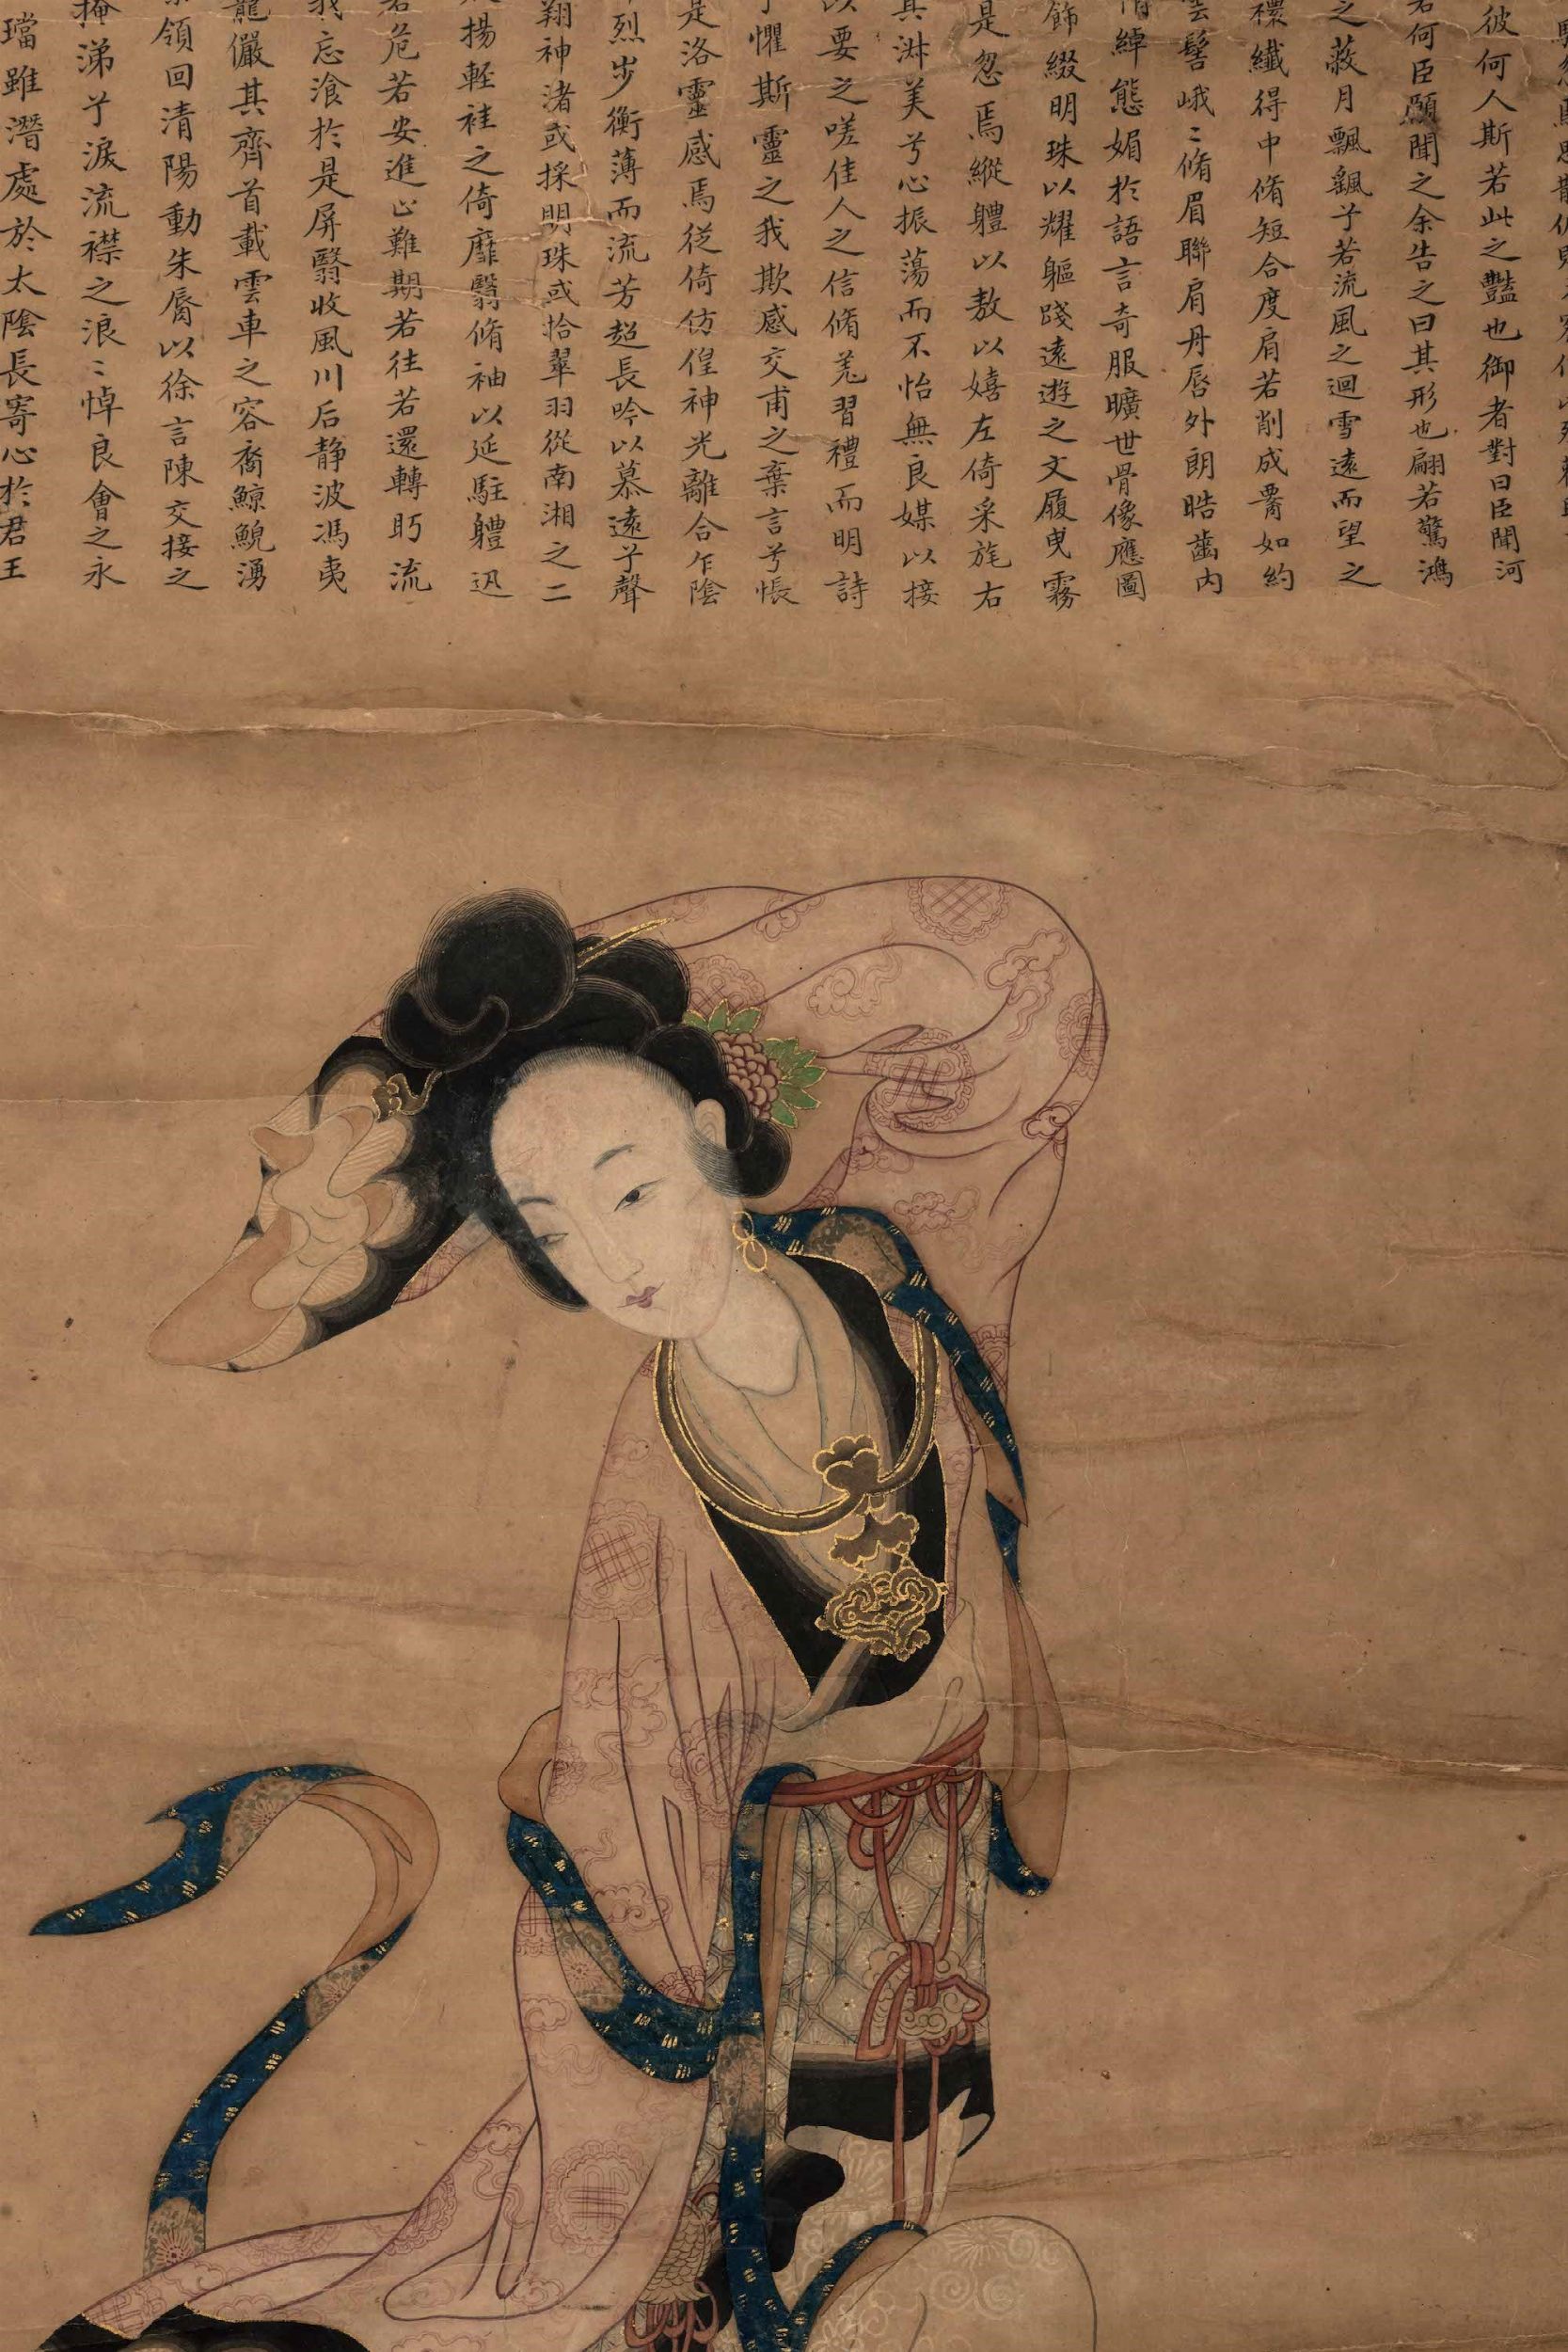 彼何人斯若此之豔也御者對曰臣聞河
若何臣願聞之余告之曰其形也翩若驚鴻
之蔽月飄颻兮若流風之迴雪遠而望之
襛纖得中脩短合度肩若削成腰如約
雲髻峨〻脩眉聯肩丹唇外朗晧齒内
情綽態媚於語言奇服曠世骨像應圖
飾綴明珠以耀軀踐遠遊之文履曳霧
是忽焉縱體以敖以嬉左倚采旄右
其淑美兮心振蕩而不怡無良媒以接
以要之嗟佳人之信脩羌習禮而明詩
兮懼斯靈之我欺感交甫之棄言兮悵
是洛靈感焉從倚仿偟神光離合乍陰
烈步衡薄而流芳超長吟以慕遠兮聲
翔神渚或採明珠或拾翠羽從南湘之二
揚軽袿之倚靡翳脩袖以延駐軆迅
若危若安進止難期若往若還轉眄流
我忘飡於是屏翳收風川后静波馮夷
龍儼其齊首載雲車之容裔鯨鯢湧
領回清陽動朱脣以徐言陳交接之
掩涕兮淚流襟之浪〻悼良會之永
璫雖潛處於太陰長寄心於君王